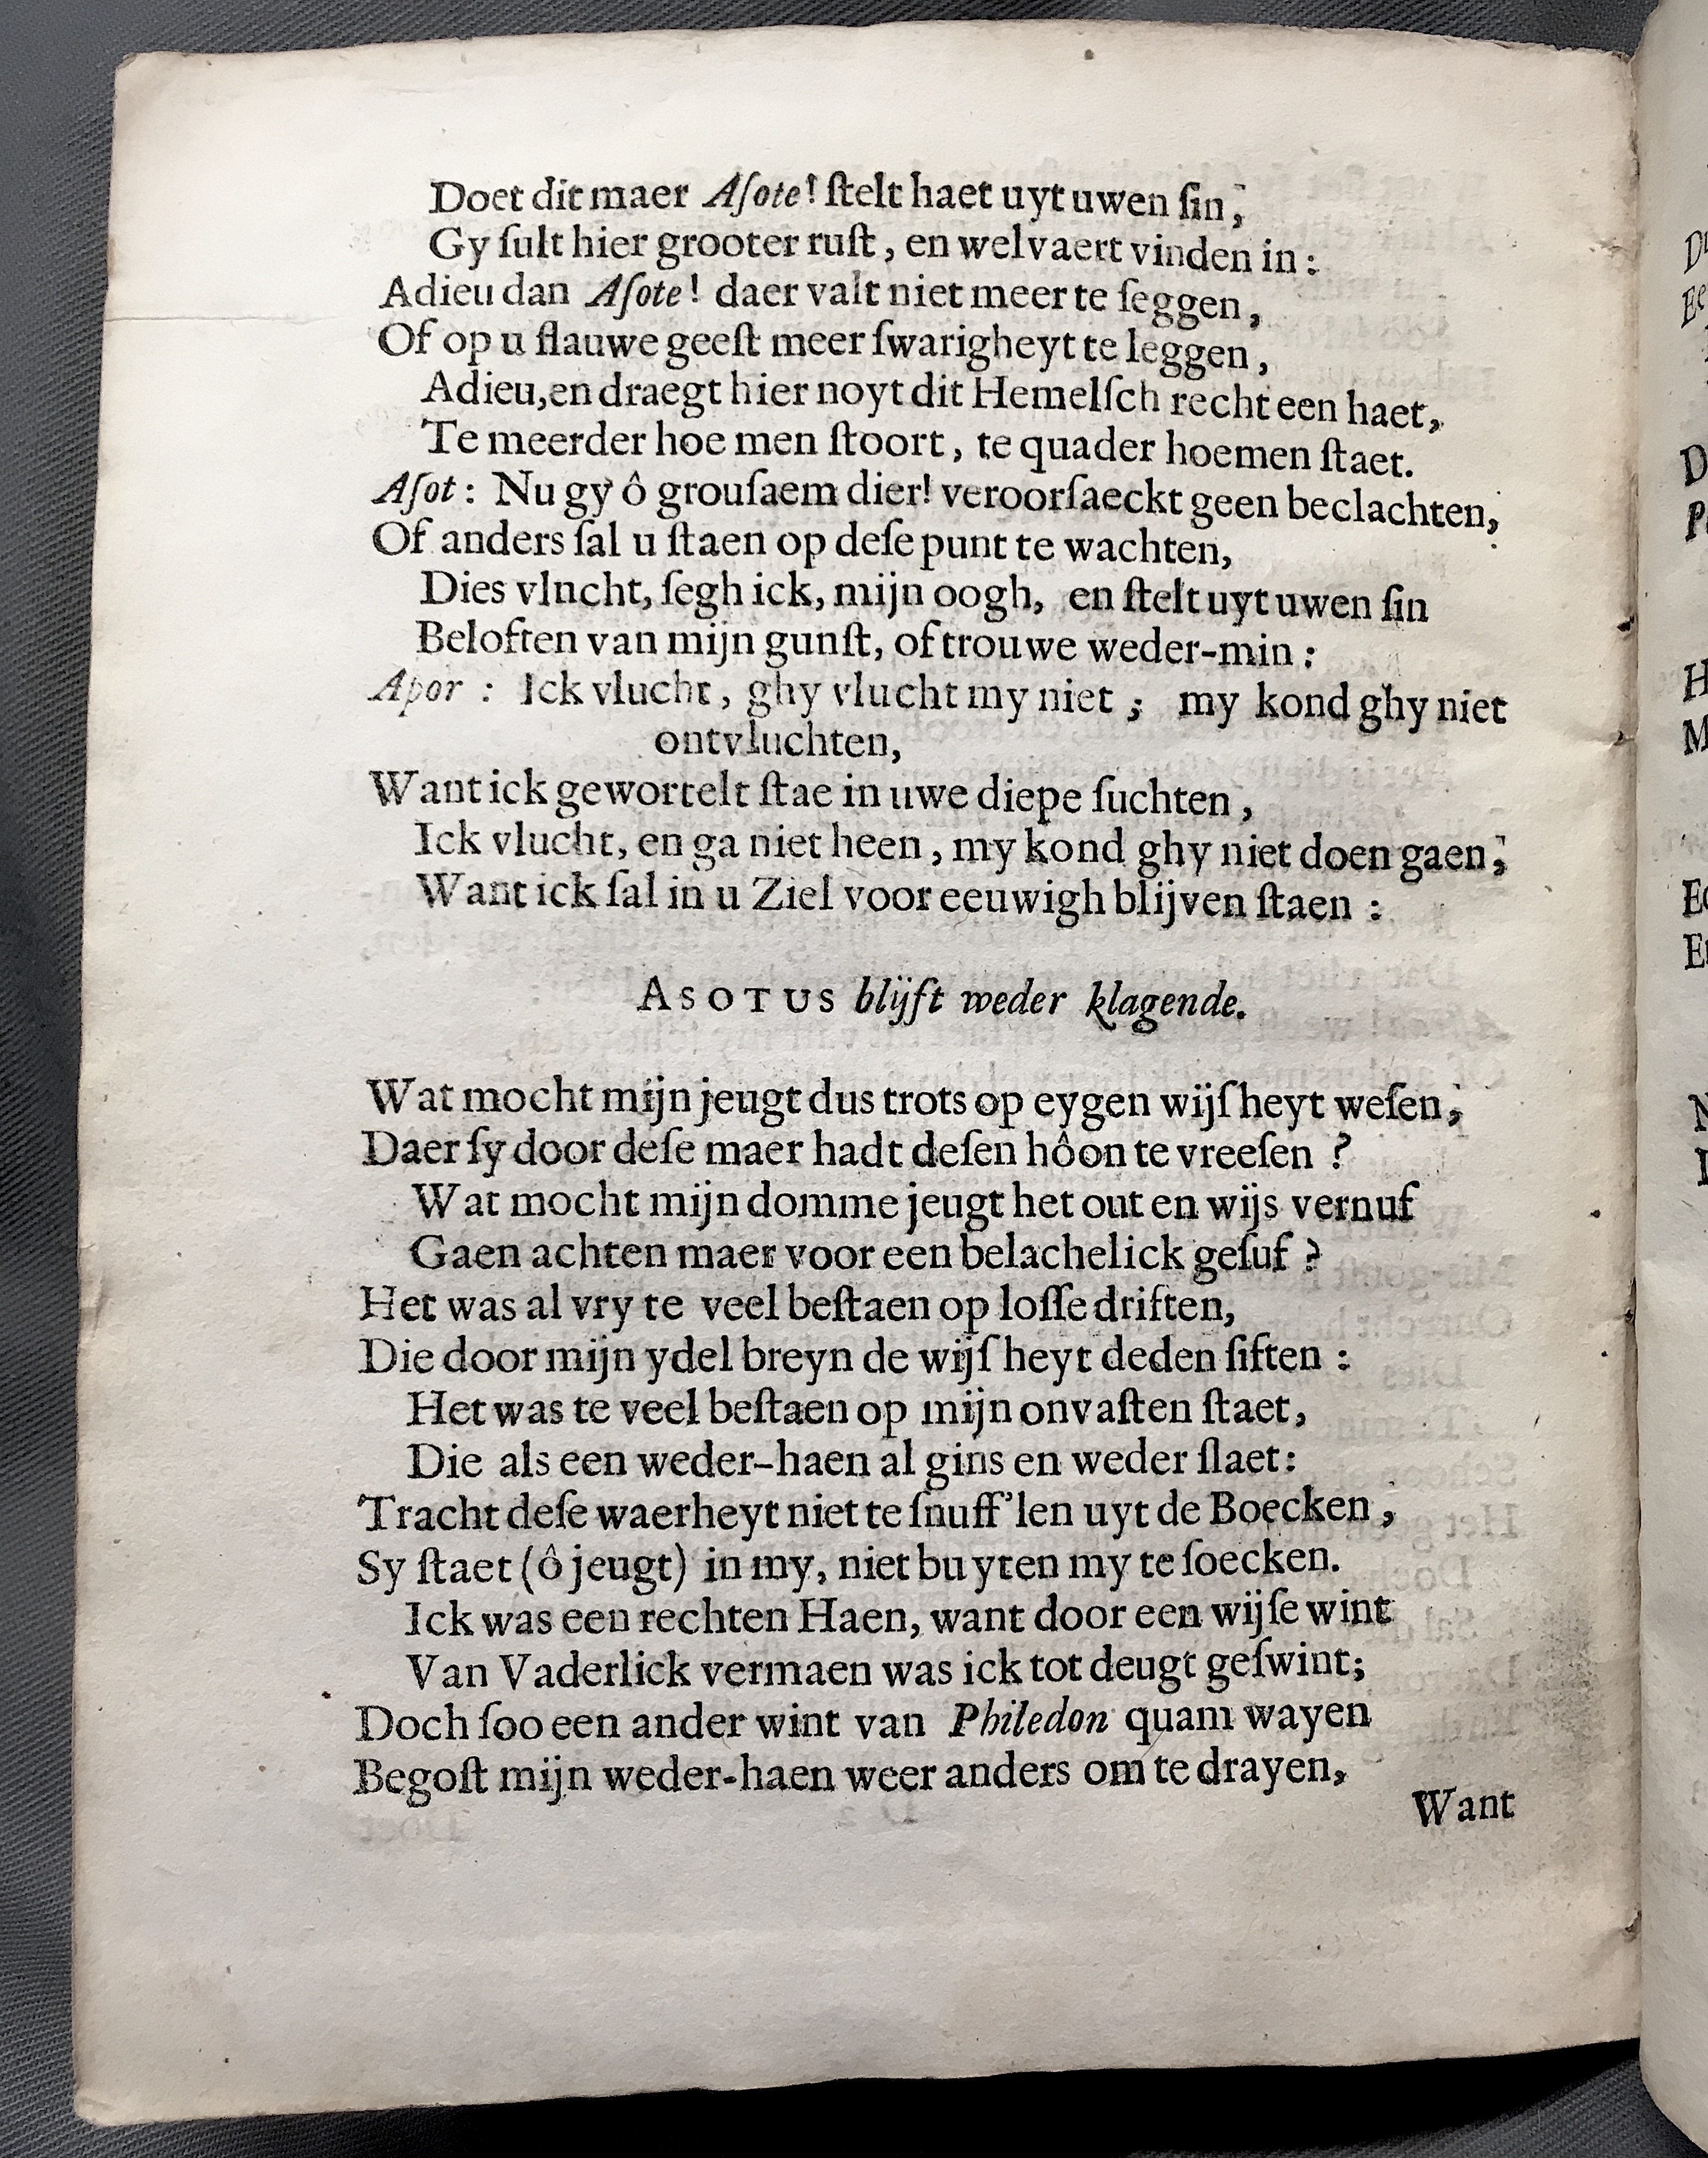 Doet dit maer Aſote! ſtelt haet uyt uwen ſin,
Gy ſult hier grooter ruſt, en welvaert vinden in:
Adieu dan Aſote! daer valt niet meer te ſeggen,
Of op u flauwe geeſt meer ſwarigheyt te leggen,
Adieu, en draegt hier noyt dit Hemelſch recht een haet,
Te meerder hoe men ſtoort, te quader hoemen ſtaet.
Aſot: Nu gy ô grouſaem dier! veroorſaeckt geen beclachten,
Of anders ſal u ſtaen op deſe punt te wachten,
Dies vlucht, ſegh ick, mijn oogh, en ſtelt uyt uwen ſin
Beloften van mijn gunſt, of trouwe weder-min:
Apor: Ick vlucht, ghy vlucht my niet; my kond ghy niet
ontvluchten,
Want ick gewortelt ſtae in uwe diepe ſuchten,
Ick vlucht, en ga niet heen, my kond ghy niet doen gaen,
Want ick ſal in u Ziel voor eeuwigh blijven ſtaen:
ASOTUS blijft weder klagende.
Wat mocht mijn jeugt dus trots op eygen wijſheyt weſen,
Daer ſy door deſe maer hadt deſen hôon te vreeſen?
Wat mocht mijn domme jeugt het out en wijs vernuf
Gaen achten maer voor een belachelick geſuf?
Het was al vry te veel beſtaen op loſſe driften,
Die door mijn ydel breyn de wijſheyt deden ſiften:
Het was te veel beſtaen op mijn onvaſten ſtaet,
Die als een weder-haen al gins en weder ſlaet:
Tracht deſe waerheyt niet te ſnuff'len uyt de Boecken,
Sy ſtaet (ô jeugt) in my, niet buyten my te ſoecken.
Ick was een rechten Haen, want door een wijſe wint
Van Vaderlick vermaen was ick tot deugt geſwint;
Doch ſoo een ander wint van Philedon quam wayen
Begoſt mijn weder-haen weer anders om te drayen,
Want